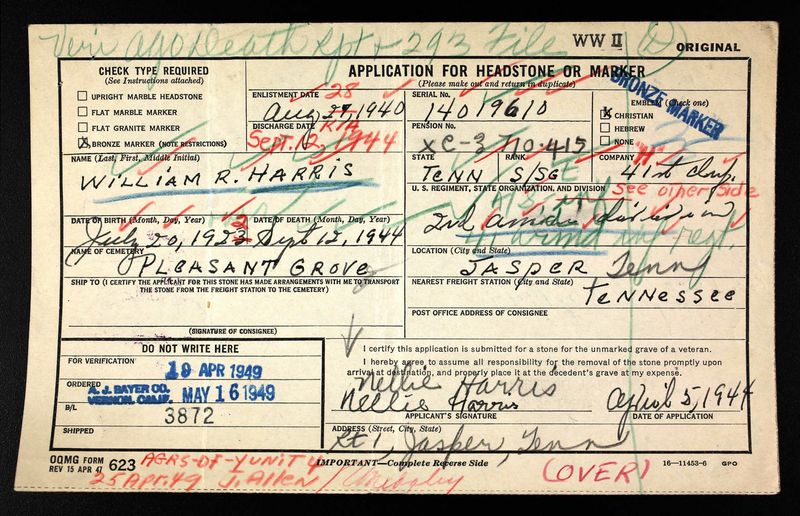 Veri ago Death Rpt + 293 File
WW II
ORIGINAL
CHECK TYPE REQUIRED
(See Instructions attached)
UPRIGHT MARBLE HEADSTONE
FLAT MARBLE MARKER
FLAT GRANITE MARKER
X BRONZE MARKER (NOTE RESTRICTIONS)
APPLICATION FOR HEADSTONE OR MARKER
(Please make out and return in duplicate)
ENLISTMENT DATE 28
Aug 27, 1940
DISCHARGE DATE KIA
Sept. 12, 1944
SERIAL No.
14019610
PENSION No.
XC-3 710.415
EMBLEM (Check one)
X CHRISTIAN
HEBREW
NONE
BRONZE MARKER
NAME (Last, First, Middle Initial)
WILLIAM R. HARRIS
STATE
TENN
RANK
S/SG
COMPANY "H"
41st
U. S. REGIMENT, STATE ORGANIZATION, AND DIVISION
See other side
2nd
DATE OF BIRTH (Month, Day, Year)
July 20, 1923
DATE OF DEATH (Month, Day, Year)
Sept 12, 1944
NAME OF CEMETERY
PLEASANT GROVE
LOCATION (City and State)
JASPER Tenn
SHIP TO (I CERTIFY THE APPLICANT FOR THIS STONE HAS MADE ARRANGEMENTS WITH ME TO TRANSPORT
THE STONE FROM THE FREIGHT STATION TO THE CEMETERY)
NEAREST FREIGHT STATION (City and State)
Tennessee
POST OFFICE ADDRESS OF CONSIGNEE
(SIGNATURE OF CONSIGNEE)
DO NOT WRITE HERE
FOR VERIFICATION
19 APR 1949
ORDERED
A. J. BAYER CO.
VERNON, CALIF.
MAY 16 1949
B/L
3872
SHIPPED
I certify this application is submitted for a stone for the unmarked grave of a veteran.
I hereby agree to assume all responsibility for the removal of the stone promptly upon
arrival at destination, and properly place it at the decedent's grave at my expense.
Nellie Harris
Nellie Harris
April 5, 1944
APPLICANT'S SIGNATURE
DATE OF APPLICATION
ADDRESS (Street, City, State)
Rt 1, Jasper, Tenn
OQMG FORM
REV 15 APR 47
623
AGRS-DF-
25 Apr. 49 J. Allen
IMPORTANT—Complete Reverse Side
(OVER)
16—11453-6 GPO